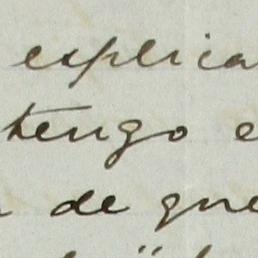 explica
tengo e
de que